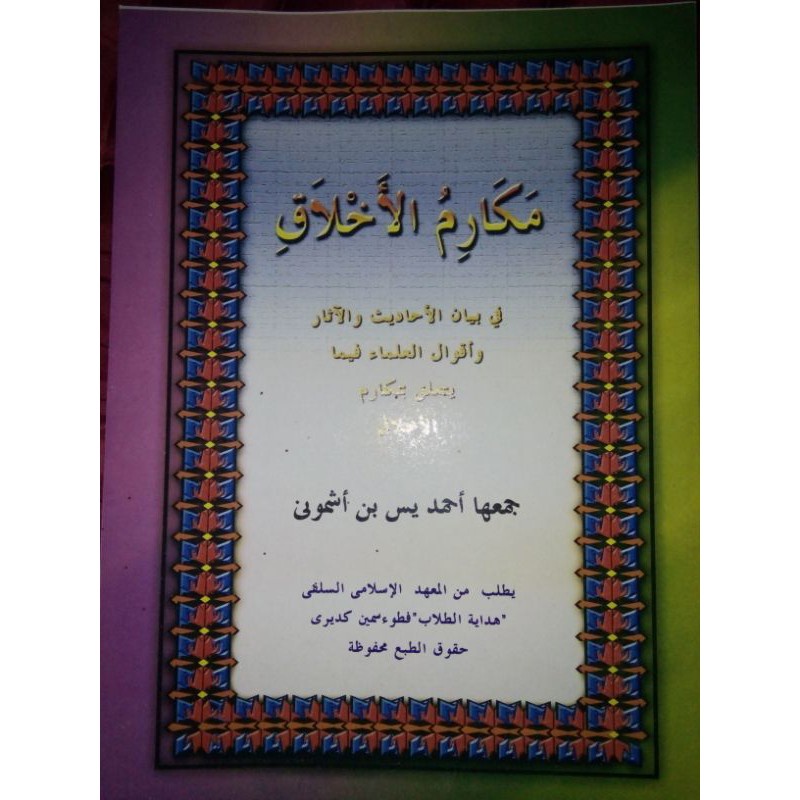 مَكَارِمُ الأَخْلَاقِ
في بيان الأحاديث والآثار
وأقوال العلماء فيما
يتعلق بمكارم
الأخلاق
جمعها أحمد يس بن أشمونى
يطلب من المعهد الإسلامى السلفى
"هداية الطلاب" فطوءسمين كديرى
حقوق الطبع محفوظة